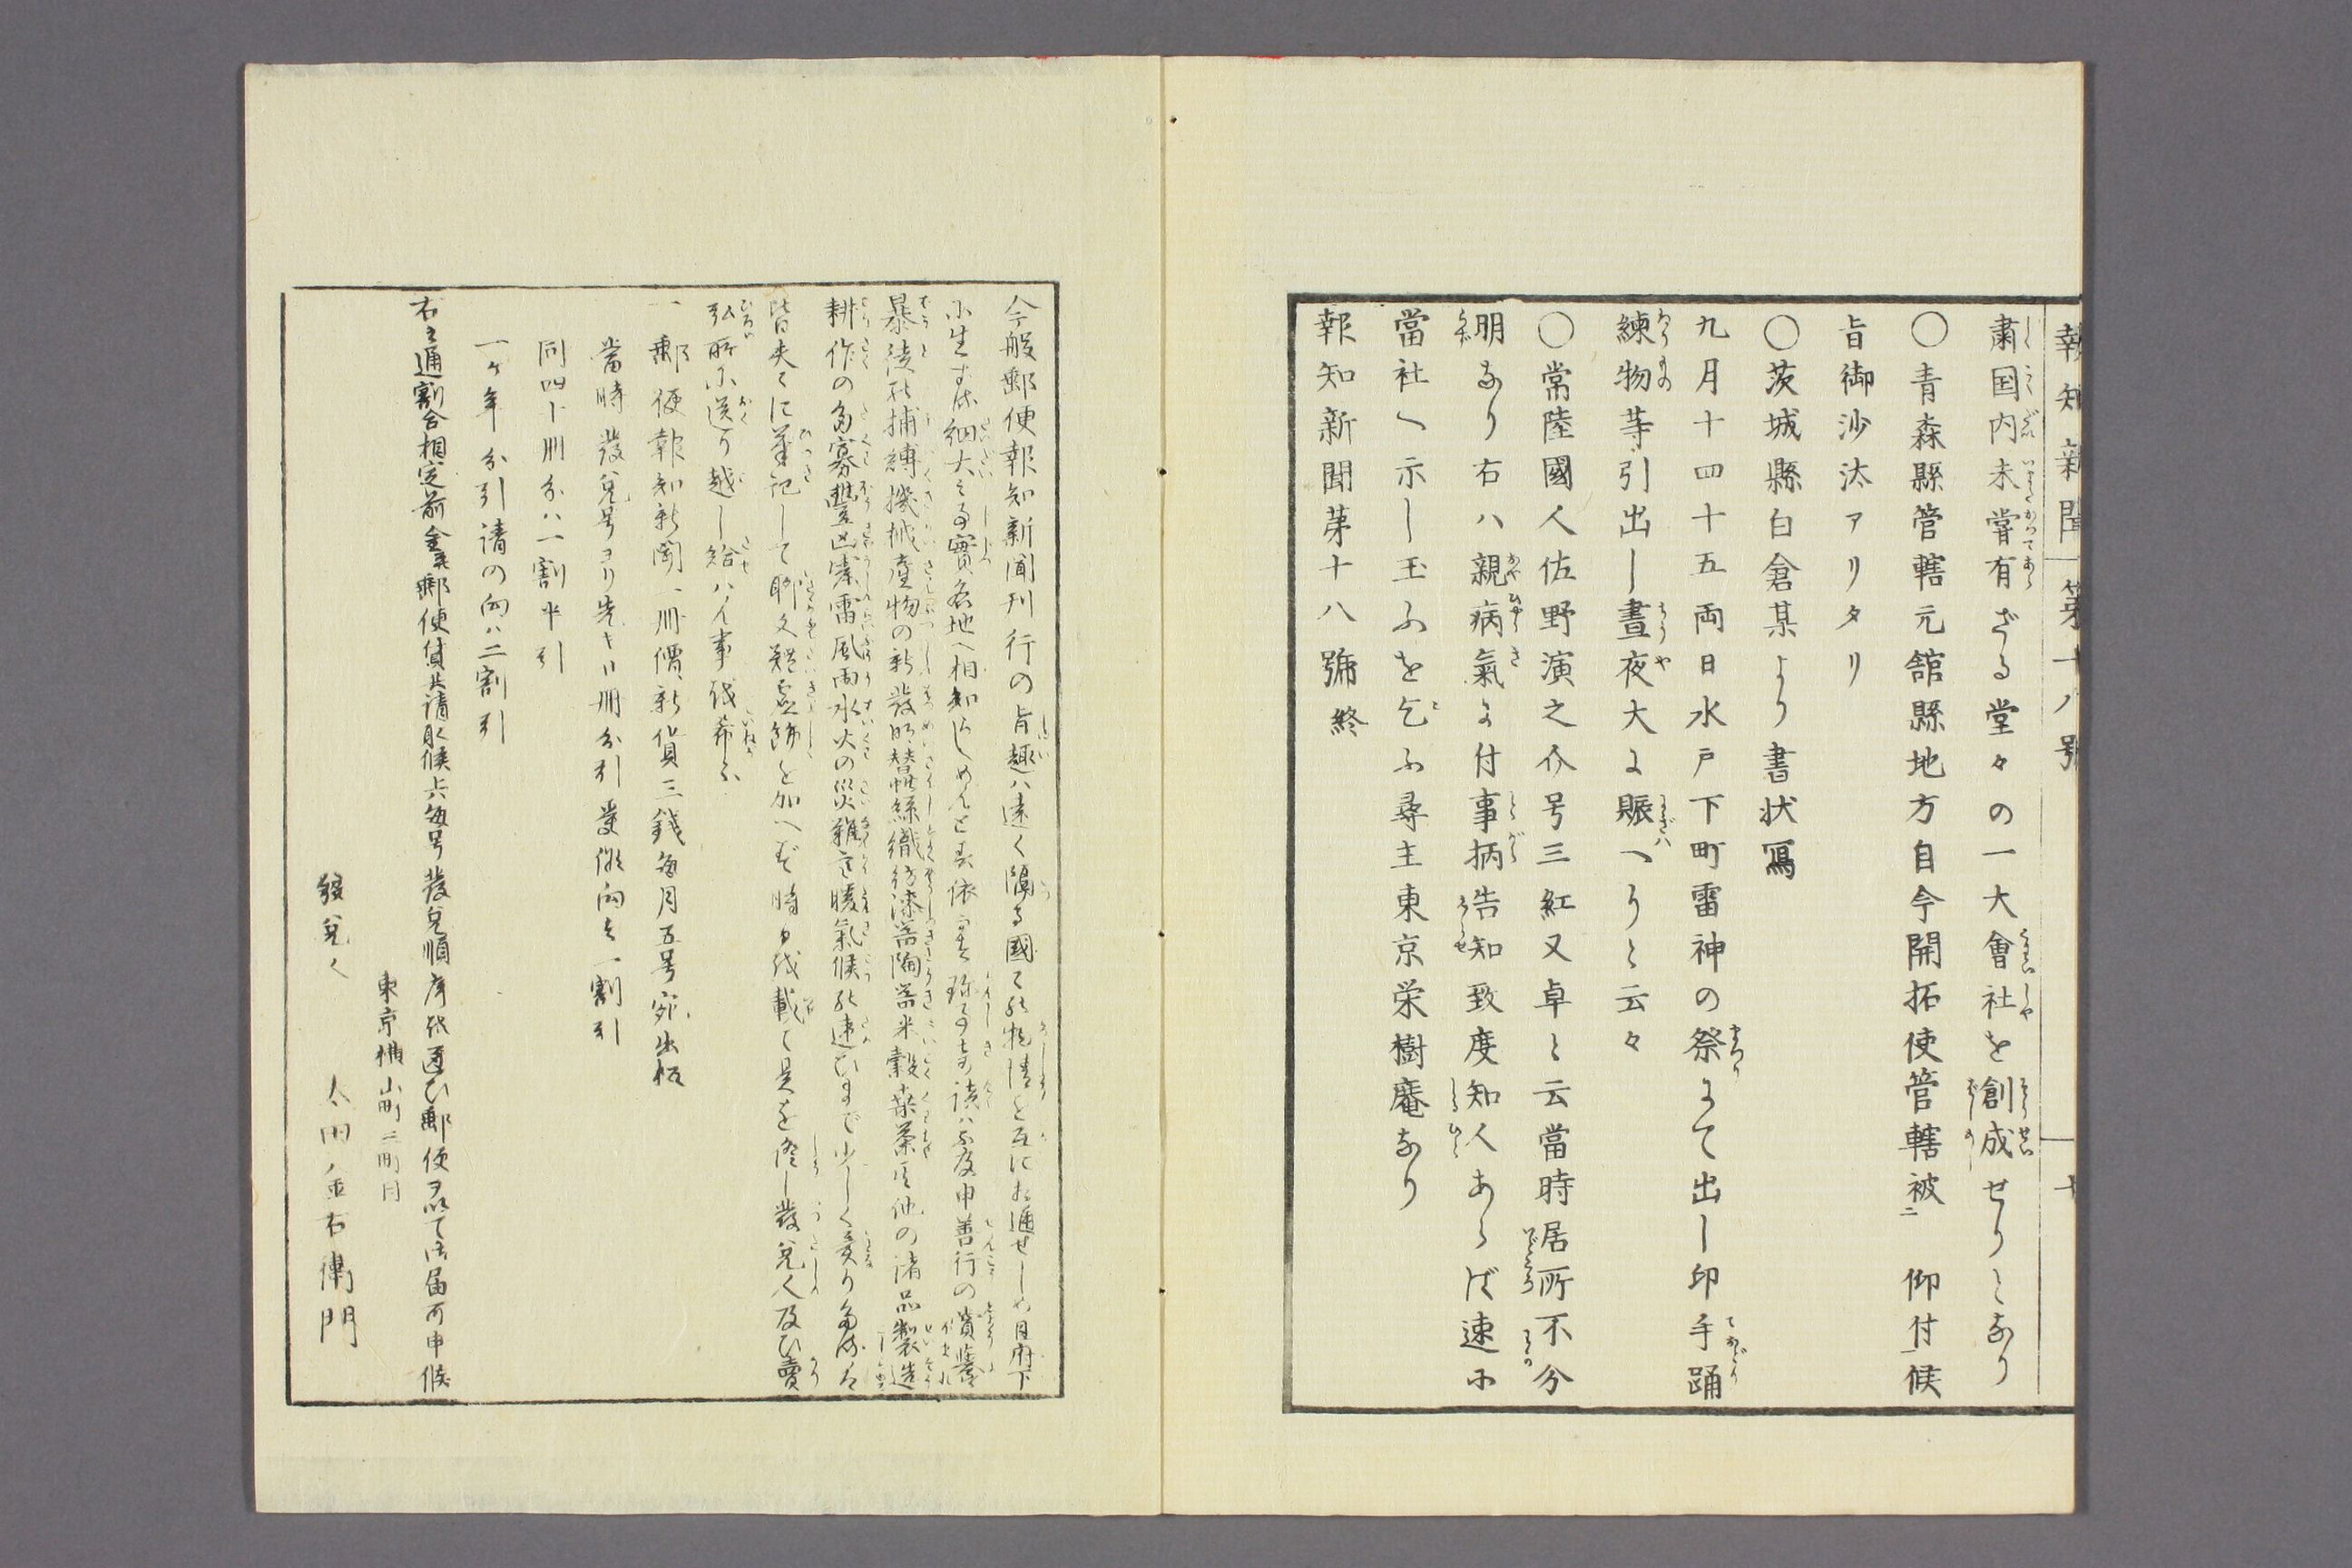 報知新聞 第十八號 十
肅国内未甞有ざる堂々の一大會社を創成せりとなり
〇青森縣管轄元舘縣地方自今開拓使管轄被二 仰付一候
旨御沙汰アリタリ
〇茨城縣白倉某より書状寫
九月十四十五両日水戸下町雷神の祭にて出し印手踊
練物䓁引出し晝夜大に賑へりと云々
〇常陸國人佐野演之介号三紅又卓と云當時居所不分
明なり右ハ親病氣に付事柄告知致度知人あらば速に
當社へ示し玉ふを乞ふ尋主東京栄樹庵なり
報知新聞苐十八號終
今般郵便報知新聞刊行の旨趣ハ遠く隔る國々の物情を互に相通せしめ且府下
に生ずる細大之事實各地へ相知らしめんと す依之 珍事奇談ハ 申善行の賞誉
暴徒の捕縛機械産物の新發明 蠶糸織物漆器陶器米穀桑茶其他の諸品製造
耕作の多寡豐凶 雷風雨水火の災難寒暖氣候の速ひまで少しく異り
皆夫々に筆記して聊文 虚飾を加へず時日を載て是を 發兌人及ひ賣
弘所に送り越し給ハん事を希ふ
一郵便報知新聞一冊價新貨三錢毎月五号宛出板
當時發兌号ヨリ先キ十冊分引受候向を一割引
同四十冊分ハ一割半引
一ケ年分引請の向ハ二割引
右之通割合相定前金 郵便賃共請取候上毎号發兌順序を逐ひ郵便ヲ以て御届可申候
東京横山町三町目
發兌人 太田金右衛門